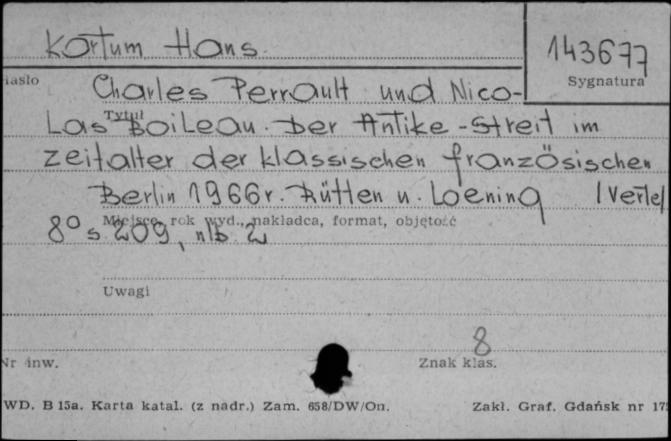 Kortum Hans.
143677
Sygnatura
Hasło
Charles Perrault und Nico-
Tytuł
Las Boileau. Der Antike-Streit im
zeitalter der klassischen französischen
Berlin 1966r. Rütten u. Loening
Miejsce, rok wyd., nakładca, format, objętość
8° s. 209, nlb. 2
Uwagi
8
Nr inw.
Znak klas.
WD. B 15a. Karta katal. (z nadr.) Zam. 658/DW/On.
Zakł. Graf. Gdańsk nr